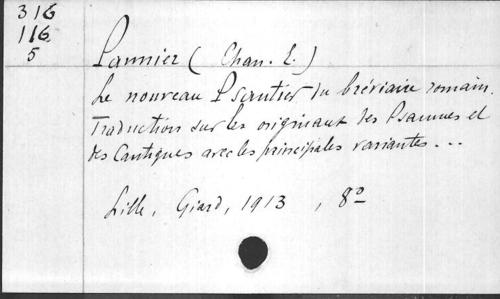 316
116
5
Pannier (Chan. E.)
Le nouveau Psautier du bréviaire romain.
Traduction sur les originaux des Psaumes et
des Cantiques avec les principales variantes...
Lille, Giard, 1913, 8º